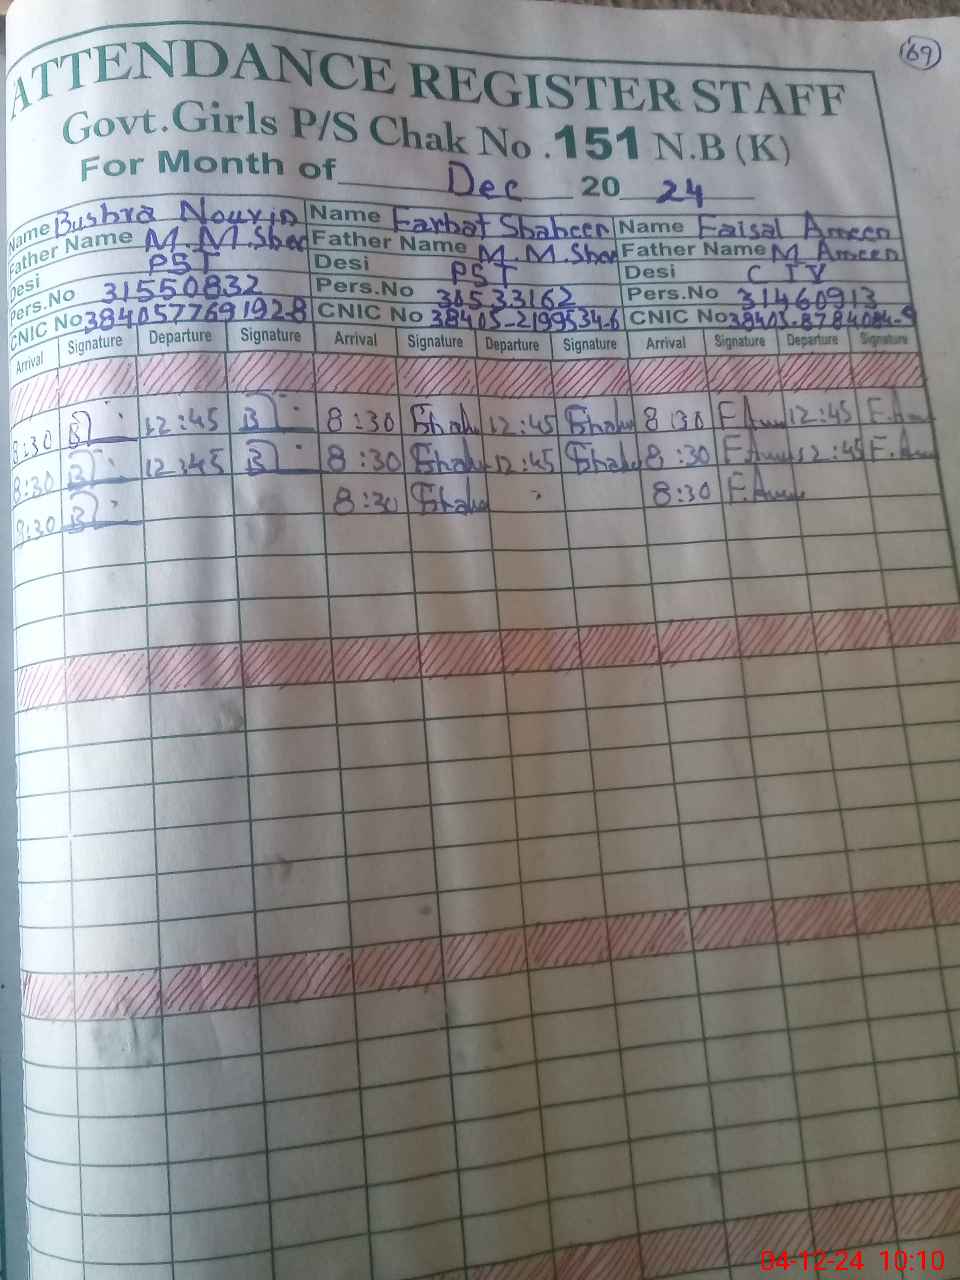 69
ATTENDANCE REGISTER STAFF
Govt.Girls P/S Chak No .151 N.B (K)
For Month of Dec 20 24
Name Bushra Nourin Name Farhat Shaheen Name Faisal Ameen
Father Name M. M. Sher Father Name M. M. Sher Father Name M Ameen
Desi PST Desi PST Desi
Pers.No 31550832 Pers.No 30533162 Pers.No 31460913
CNIC No 3840577691928 CNIC No 38405-2199534-6 CNIC No
Arrival Signature Departure Signature Arrival Signature Departure Signature Arrival Signature Departure Signature
8:30 12:45 8:30 12:45 8:30 F.Am 12:45 F.Am
8:30 12:45 8:30 12:45 8:30 F.Am 12:45 F.Am
8:30 8:30 8:30 F.Am
04-12-24 10:10